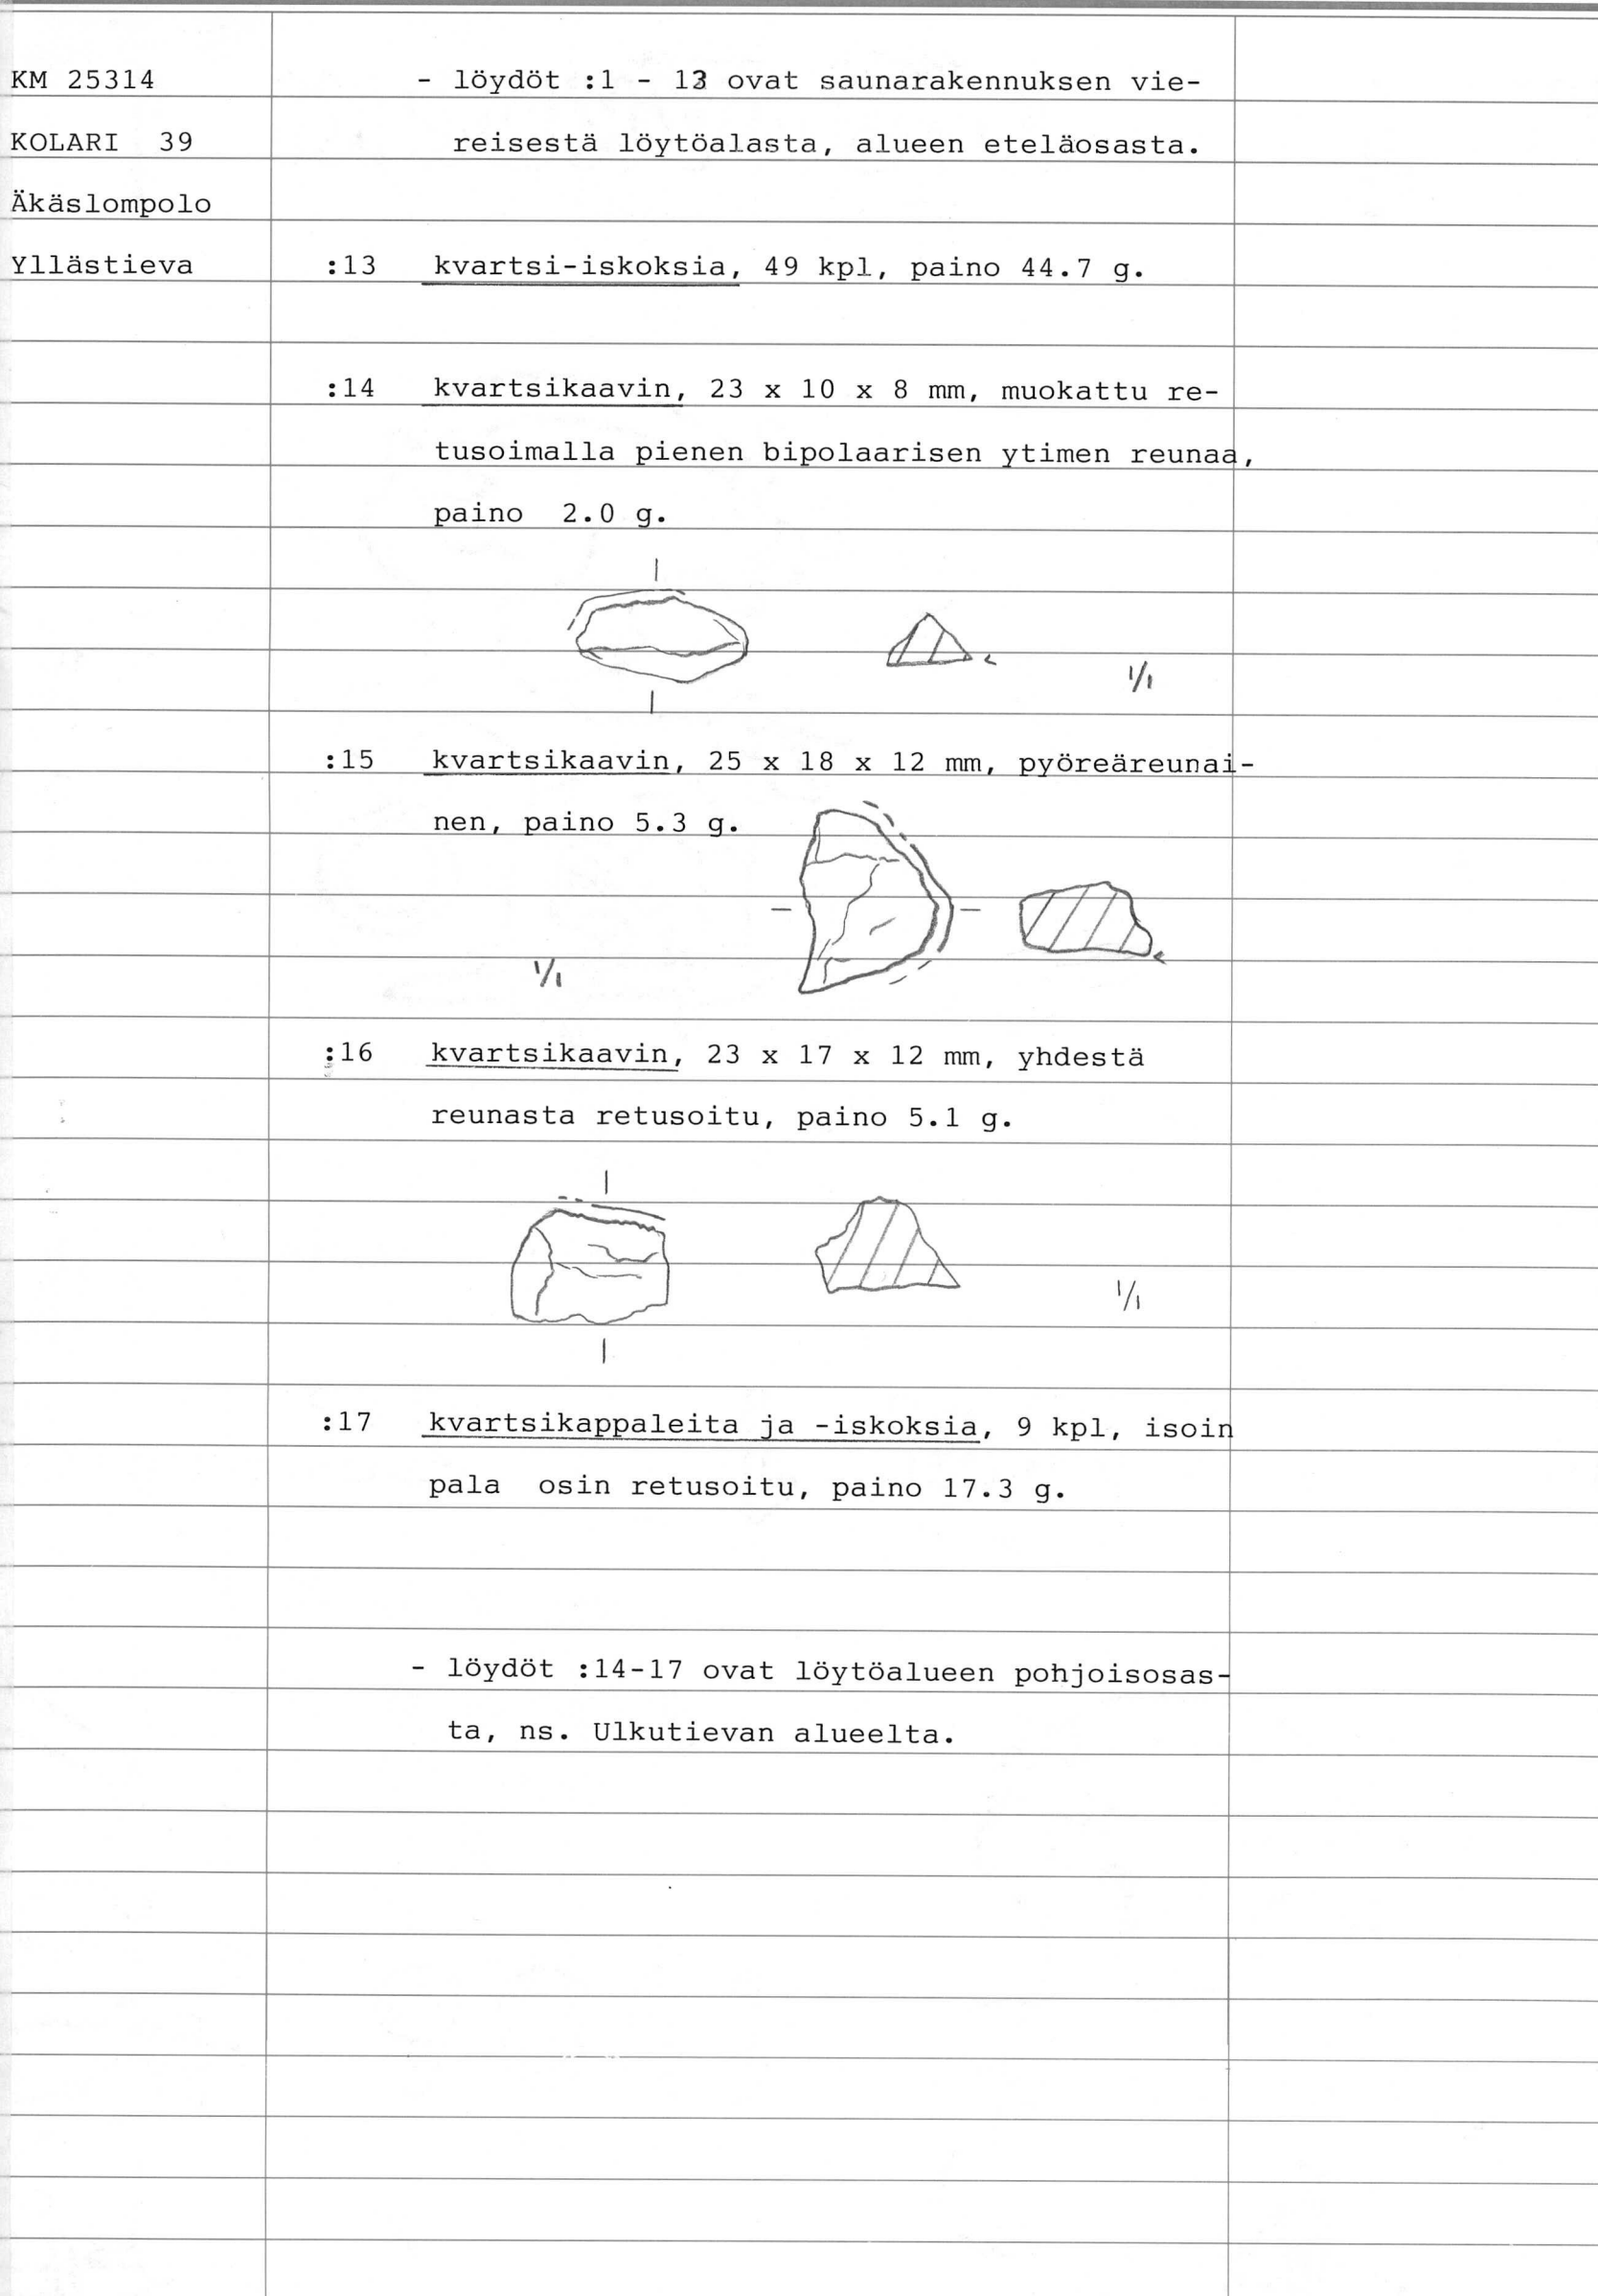 KM 25314
- löydöt :1 - 13 ovat saunarakennuksen vie-
KOLARI 39
reisestä löytöalasta, alueen eteläosasta.
Äkäslompolo
Yllästieva
:13 kvartsi-iskoksia, 49 kpl, paino 44.7 g.
:14 kvartsikaavin, 23 x 10 x 8 mm, muokattu re-
tusoimalla pienen bipolaarisen ytimen reunaa,
paino 2.0 g.
1/1
:15 kvartsikaavin, 25 x 18 x 12 mm, pyöreäreunai-
nen, paino 5.3 g.
1/1
:16 kvartsikaavin, 23 x 17 x 12 mm, yhdestä
reunasta retusoitu, paino 5.1 g.
1/1
:17 kvartsikappaleita ja -iskoksia, 9 kpl, isoin
pala osin retusoitu, paino 17.3 g.
- löydöt :14-17 ovat löytöalueen pohjoisosas-
ta, ns. Ulkutievan alueelta.